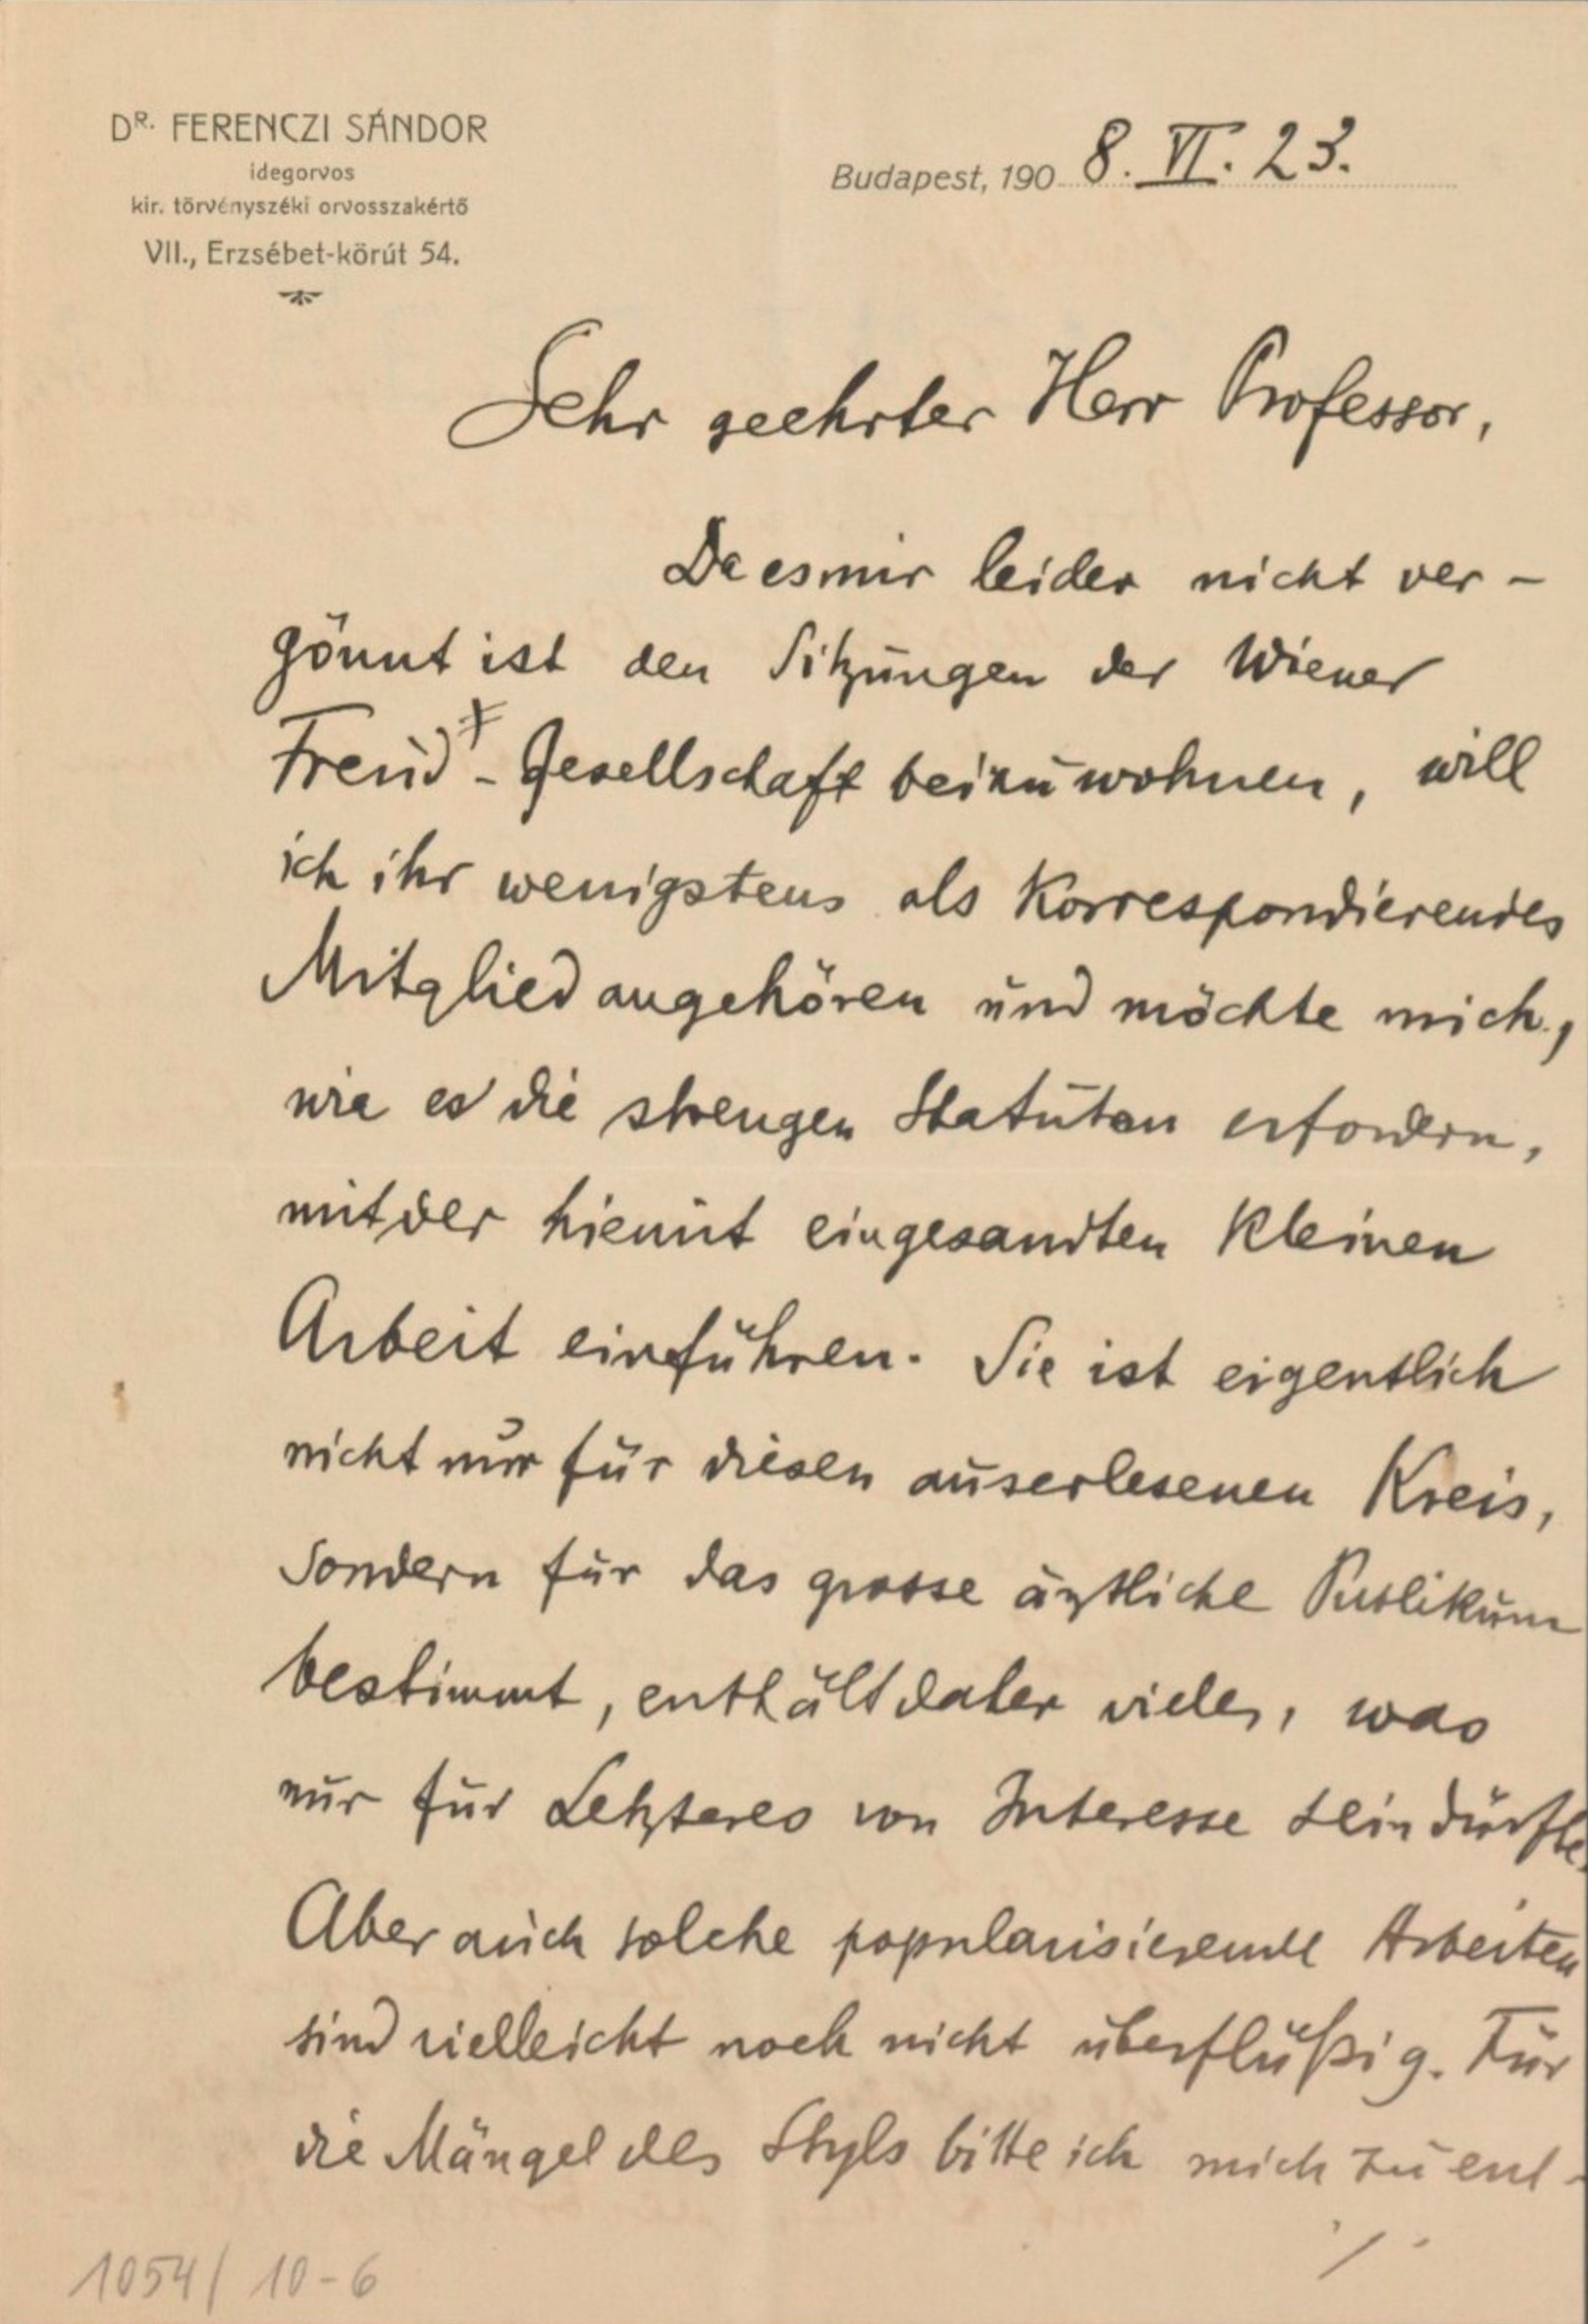 DR. FERENCZI SÁNDOR
idegorvos
kir. törvényszéki orvosszakértő
VII., Erzsébet-körút 54.
Budapest, 190 8. VI. 23.
Sehr geehrter Herr Professor,
Da es mir leider nicht ver-
gönnt ist den Sitzungen der Wiener
Freud-Gesellschaft beizuwohnen, will
ich ihr wenigstens als Korrespondierendes
Mitglied angehören und möchte mich,
wie es die strengen Statuten erfordern,
mit der hiemit eingesandten kleinen
Arbeit einführen. Sie ist eigentlich
nicht nur für diesen auserlesenen Kreis,
sondern für das grosse ärztliche Publikum
bestimmt, enthält daher vieles, was
nur für Letzteres von Interesse sein dürfte.
Aber auch solche popularisierende Arbeiten
sind vielleicht noch nicht überflüßig. Für
die Mängel des Styls bitte ich mich zu ent-
./.
1054/ 10-6